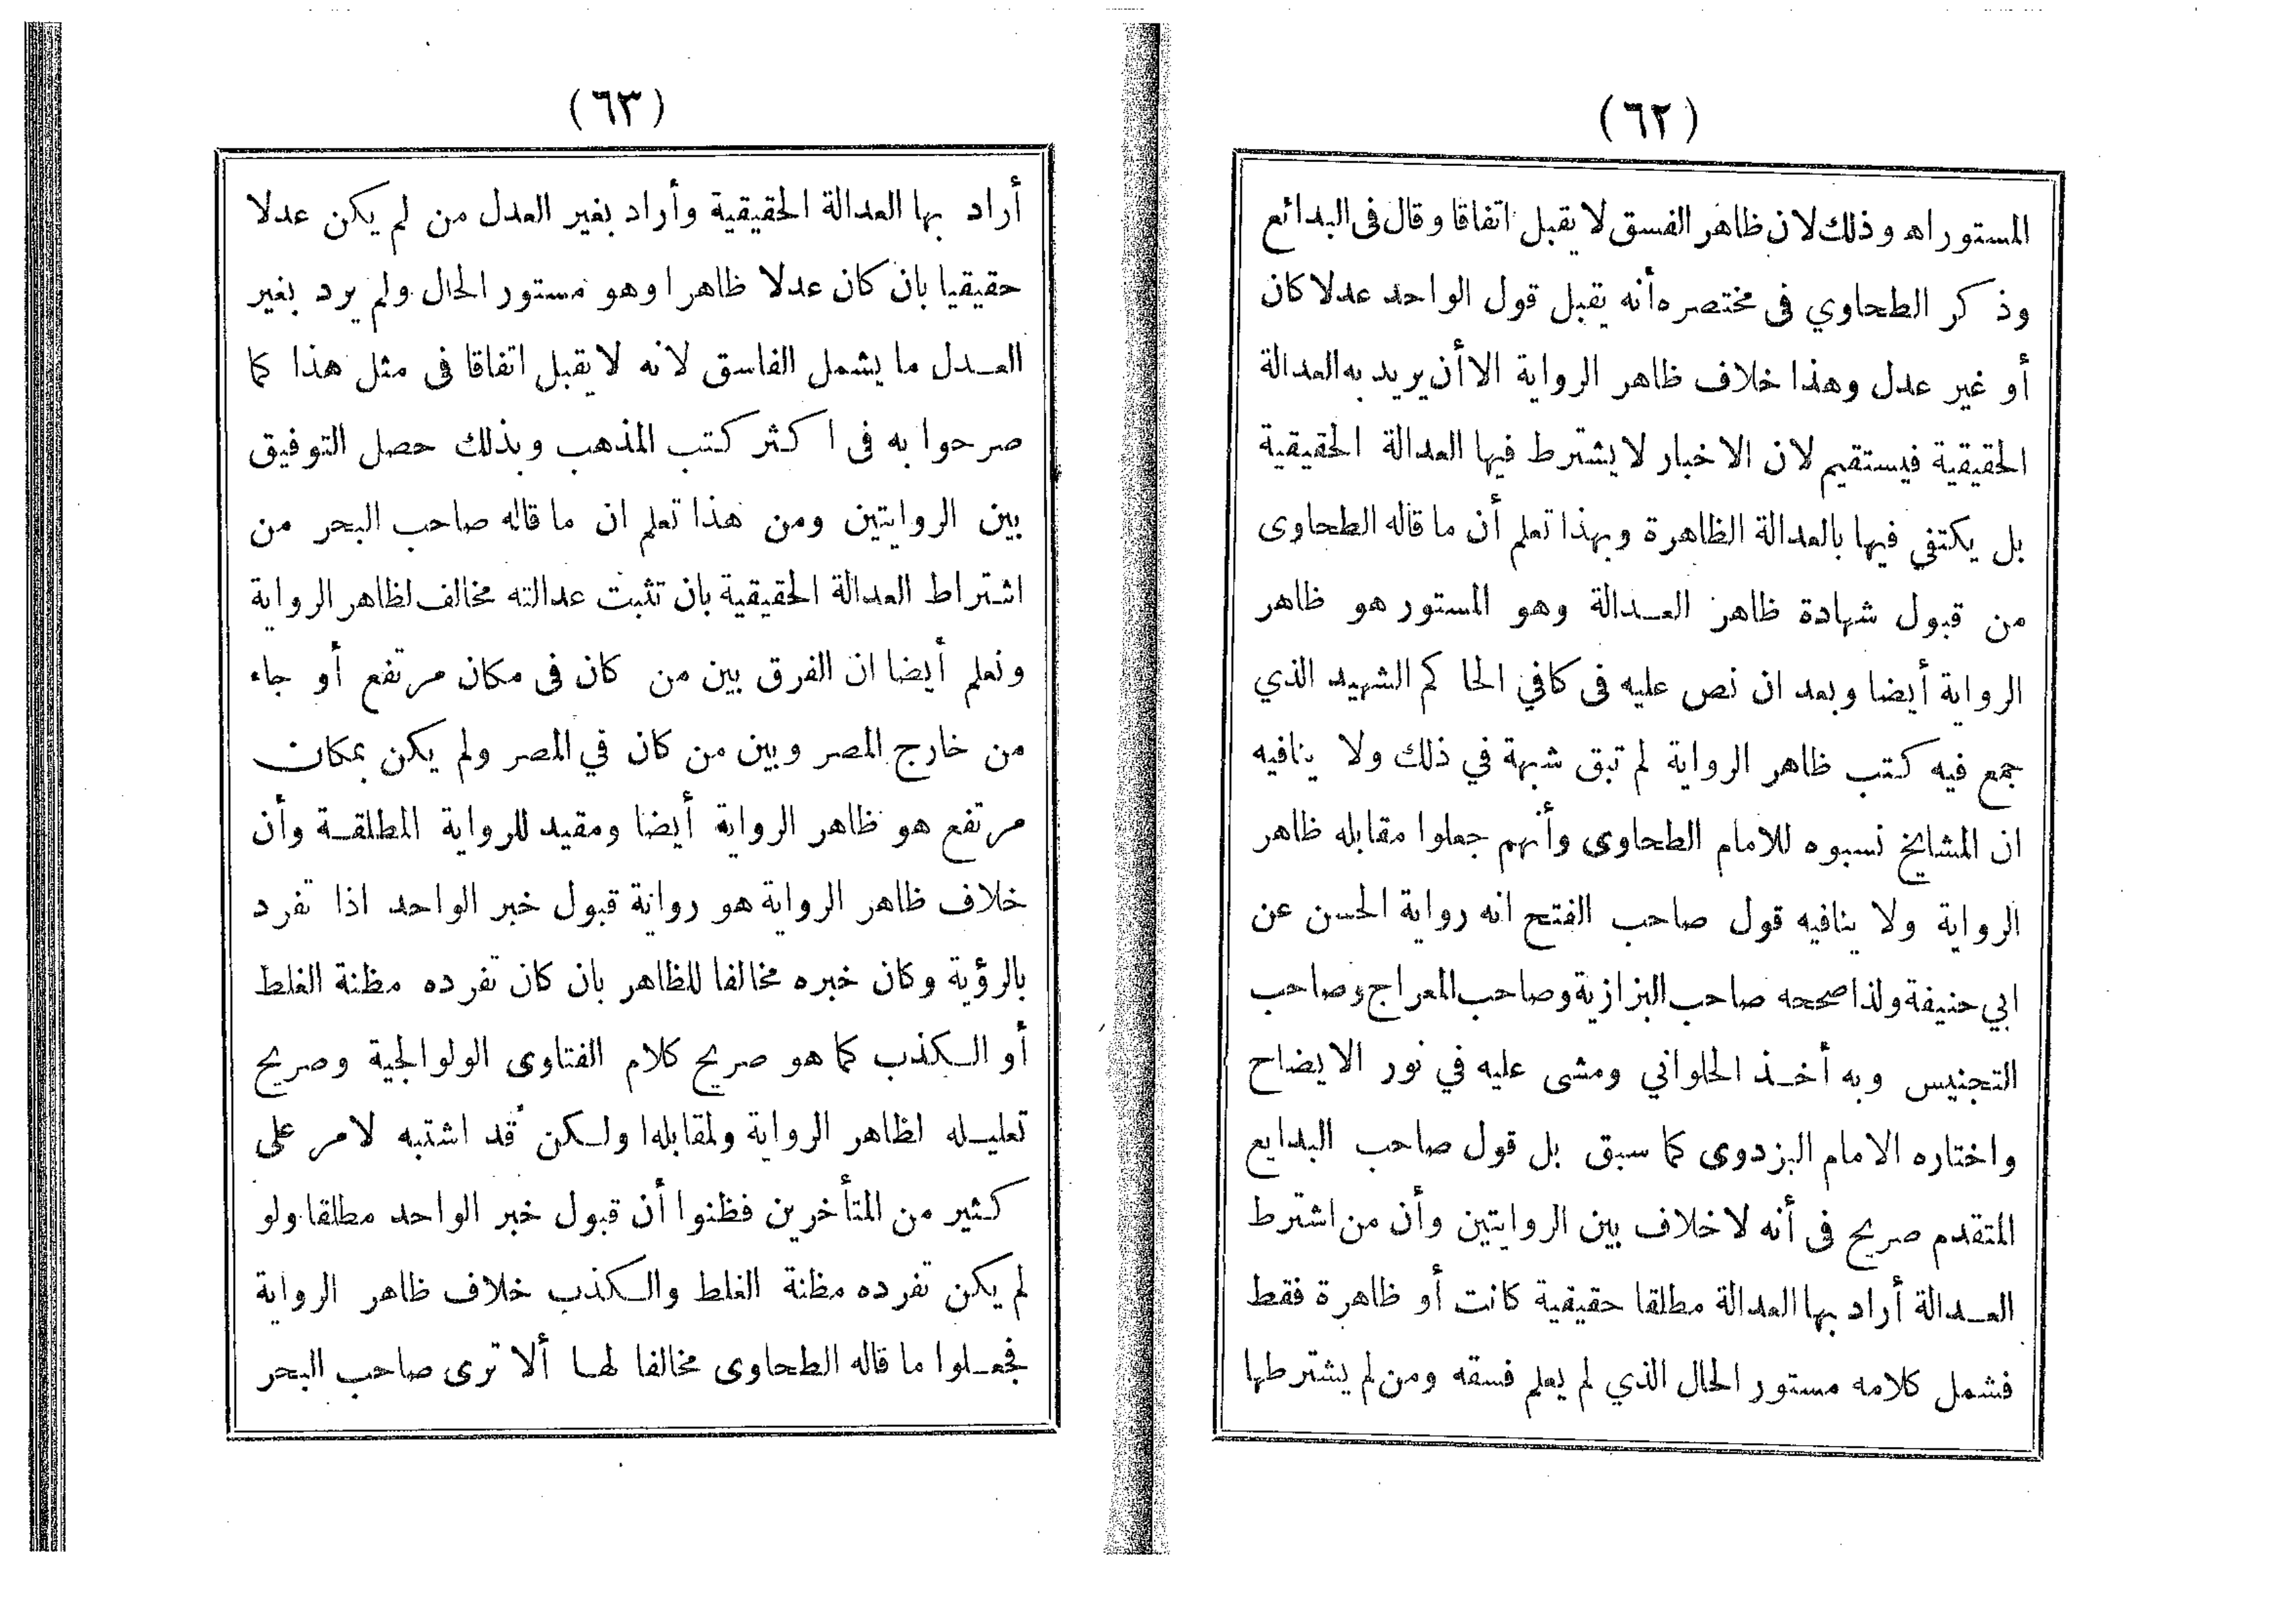 (٦٢)
المستور اه وذلك لان ظاهر الفسق لا يقبل اتفاقا وقال فى البدائع
وذكر الطحاوي فى مختصره أنه يقبل قول الواحد عدلا كان
أو غير عدل وهذا خلاف ظاهر الرواية الا أن يريد به العدالة
الحقيقية فيستقيم لان الاخبار لا يشترط فيها العدالة الحقيقية
بل يكتفي فيها بالعدالة الظاهرة وبهذا تعلم أن ما قاله الطحاوى
من قبول شهادة ظاهر العدالة وهو المستور هو ظاهر
الرواية أيضا وبعد ان نص عليه فى كافي الحاكم الشهيد الذي
جمع فيه كتب ظاهر الرواية لم تبق شبهة في ذلك ولا ينافيه
ان المشايخ نسبوه للامام الطحاوى وأنهم جعلوا مقابله ظاهر
الرواية ولا ينافيه قول صاحب الفتح انه رواية الحسن عن
ابي حنيفة ولذا صححه صاحب البزازية وصاحب المعراج وصاحب
التجنيس وبه أخذ الحلواني ومشى عليه في نور الايضاح
واختاره الامام البزدوى كما سبق بل قول صاحب البدايع
المتقدم صريح فى أنه لا خلاف بين الروايتين وأن من اشترط
العدالة أراد بها العدالة مطلقا حقيقية كانت أو ظاهرة فقط
فشمل كلامه مستور الحال الذي لم يعلم فسقه ومن لم يشترطها
(٦٣)
أراد بها العدالة الحقيقية وأراد بغير العدل من لم يكن عدلا
حقيقيا بان كان عدلا ظاهرا وهو مستور الحال ولم يرد بغير
العدل ما يشمل الفاسق لانه لا يقبل اتفاقا فى مثل هذا كما
صرحوا به فى اكثر كتب المذهب وبذلك حصل التوفيق
بين الروايتين ومن هذا تعلم ان ما قاله صاحب البحر من
اشتراط العدالة الحقيقية بان تثبت عدالته مخالف لظاهر الرواية
وتعلم أيضا ان الفرق بين من كان فى مكان مرتفع أو جاء
من خارج المصر وبين من كان في المصر ولم يكن بمكان
مرتفع هو ظاهر الرواية أيضا ومقيد للرواية المطلقة وأن
خلاف ظاهر الرواية هو رواية قبول خبر الواحد اذا تفرد
بالرؤية وكان خبره مخالفا للظاهر بان كان تفرده مظنة الغلط
أو الكذب كما هو صريح كلام الفتاوى الولوالجية وصريح
تعليله لظاهر الرواية ولمقابلها ولكن قد اشتبه لامر على
كثير من المتأخرين فظنوا أن قبول خبر الواحد مطلقا ولو
لم يكن تفرده مظنة الغلط والكذب خلاف ظاهر الرواية
فجعلوا ما قاله الطحاوى مخالفا لها ألا ترى صاحب البحر